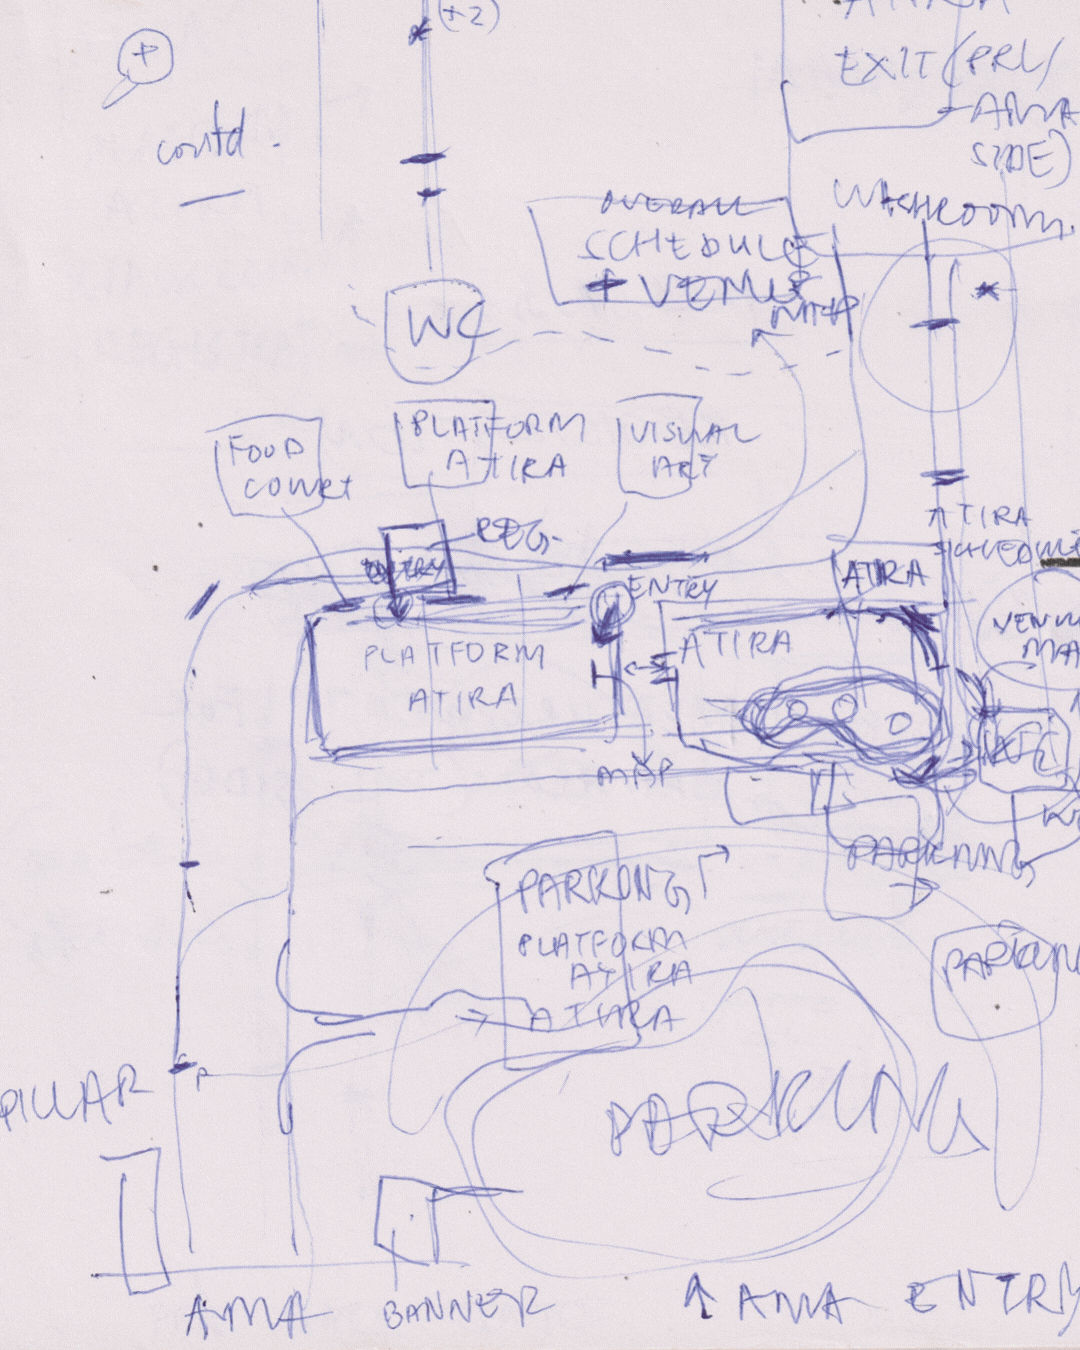 (x2)
+
contd.
ATIRA
EXIT (PRL/
AMA
SIDE)
WASHROOM.
OVERALL
SCHEDULE
+ VENUE
MAP
WC
FOOD
COURT
PLATFORM
ATIRA
VISUAL
ART
REG.
ENTRY
ENTRY
ATIRA
ATIRA
SCHEDULE
VENUE
MAP
PLATFORM
ATIRA
ATIRA
MAP
EXIT
PARKING
PARKING
PLATFORM
ATIRA
ATIRA
PARKING
P
PILLAR
PARKING
AMA
BANNER
↑ AMA ENTRY